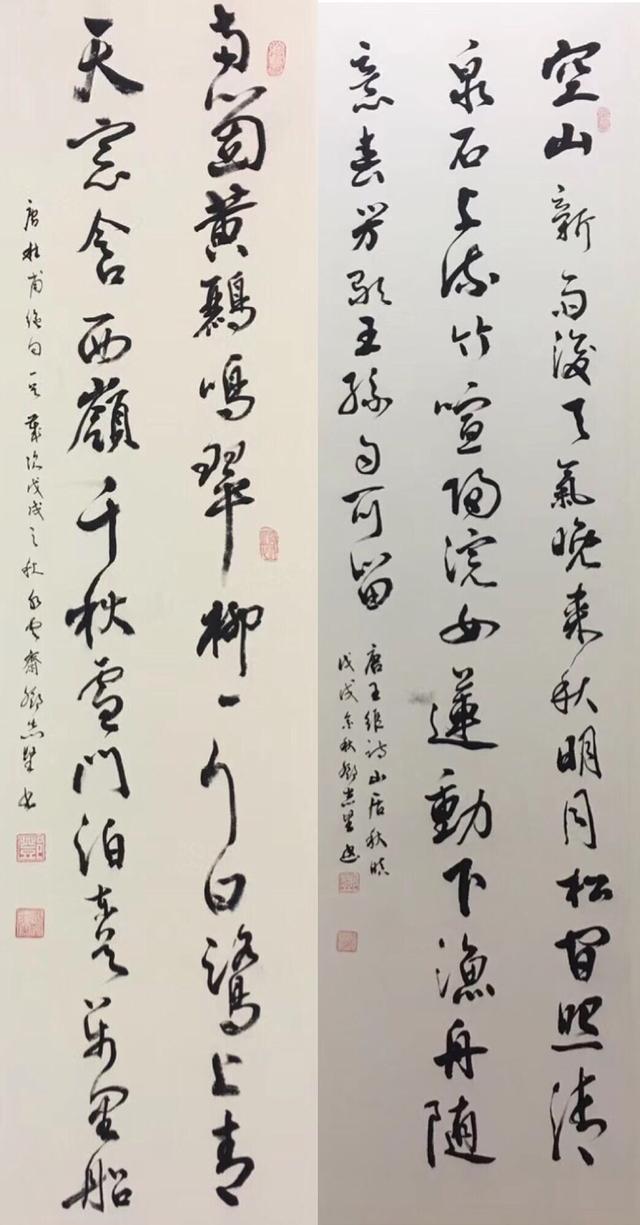 空山新雨後天氣晚來秋明月松間照清
泉石上流竹喧歸浣女蓮動下漁舟隨
意春芳歇王孫自可留
唐王維詩山居秋暝
戊戌秋鄧志書
兩個黃鸝鳴翠柳一行白鷺上青
天窗含西嶺千秋雪門泊東吳萬里船
唐杜甫絕句一首歲次戊戌之秋雲齋鄧志書